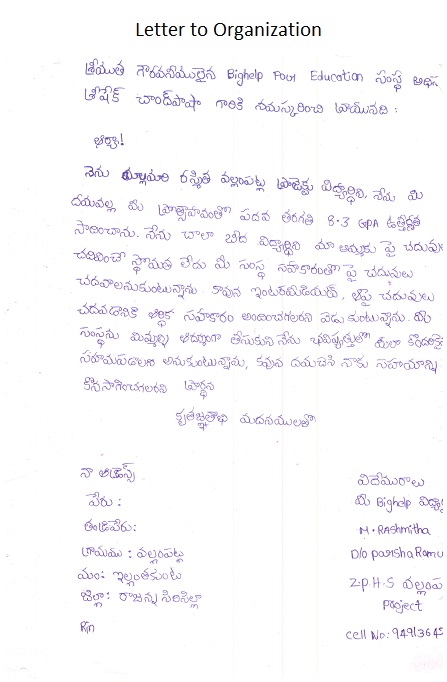 Letter to Organization
శ్రీయుత గౌరవనీయులైన Bighelp For Education సంస్థ
శ్రీషేక్ చాంద్‌పాషా గారికి నమస్కరించి వ్రాయునది :
ఆర్యా!
నేను రస్మిత వల్లంపట్ల ప్రాజెక్టు విద్యార్థిని, నేను మీ
దయవల్ల మీ ప్రోత్సాహంతో పదవ తరగతి 8.3 GPA ఉత్తీర్ణత
సాదించాను. నేను చాలా బీద విద్యార్థిని మా అమ్మకు పై చదువు
చదివించే స్థోమత లేదు మీ సంస్థ సహకారంతో పై చదువులు
చదవాలనుకుంటున్నాను. కావున ఇంటర్మీడియట్, ఆపై చదువులు
చదవడానికి ఆర్థిక సహకారం అందించగలరని వేడుకుంటున్నాను. మీ
సంస్థను మిమ్మల్ని ఆదర్శంగా తీసుకుని నేను భవిష్యత్తులో
సహాయపడాలని అనుకుంటున్నాను, కావున దయచేసి నాకు సహాయాన్ని
కొనసాగించగలరని ప్రార్థన
కృతజ్ఞతాభి వందనములతో
నా అడ్రస్స్
పేరు :
తండ్రిపేరు:
గ్రామము : వల్లంపట్ల
మం: ఇల్లంతకుంట
జిల్లా: రాజన్న సిరిసిల్లా
Pin
విదేయురాలు
మీ Bighelp
M. RAshmitha
D/o Parsha Ramu
Z.P.H.S వల్లంప
Project
Cell No: 9491364